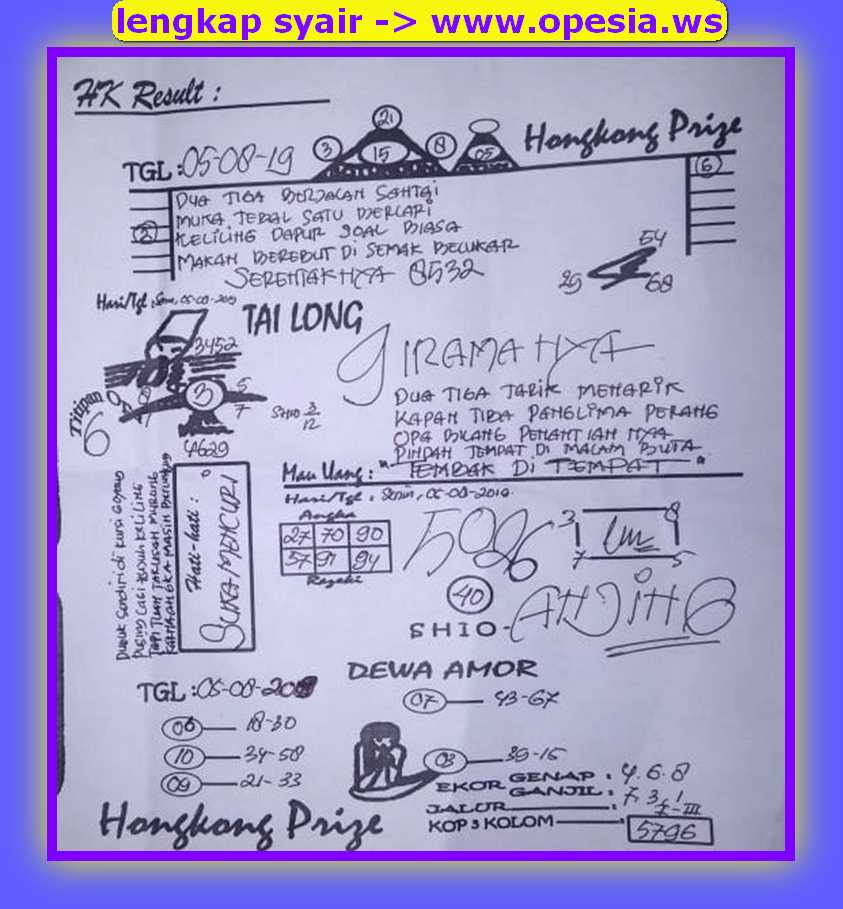 lengkap syair -> www.opesia.ws
HK Result :
Hongkong Prize
21
3
15
8
05
6
2
TGL : 05-08-19
DUA TIGA BERJALAN SANTAI
MUKA TEBAL SATU BERLARI
KELILING DAPUR SOAL BIASA
MAKAN BEREBUT DI SEMAK BELUKAR
SERENTAK NYA 8532
54
29
68
Hari/Tgl : Senin, 05-08-2019
TAI LONG
3452
3
5
7
Titipan
6
4629
SHIO 3/12
GIRAMA NYA
DUA TIGA TARIK MENARIK
KAPAN TIBA PANGLIMA PERANG
OPA BILANG PENANTIAN NYA
PINDAH TEMPAT DI MALAM BUTA
Mau Uang : "TEMBAK DI TEMPAT"
Duduk Sendiri di kursi Goyang
Pusing Lagi tujuh keliling
TAPI TUAN TAK USAH MURUNG
KARNA ANGKA MASIH Beruntung
Hati-hati :
SUKA MENCURI
Hari/Tgl : Senin, 05-08-2019
Angka
27 70 90
57 91 94
Rezeki
5096
3
8
7
5
40
SHIO - ANJING
DEWA AMOR
TGL : 05-08-2019
07 — 43-67
06 — 18-30
10 — 34-58
09 — 21-33
03 — 39-15
EKOR GENAP : 4.6.8
GANJIL : 7.3.1
JALUR : I-III
KOP 3 KOLOM — : 5796
Hongkong Prize